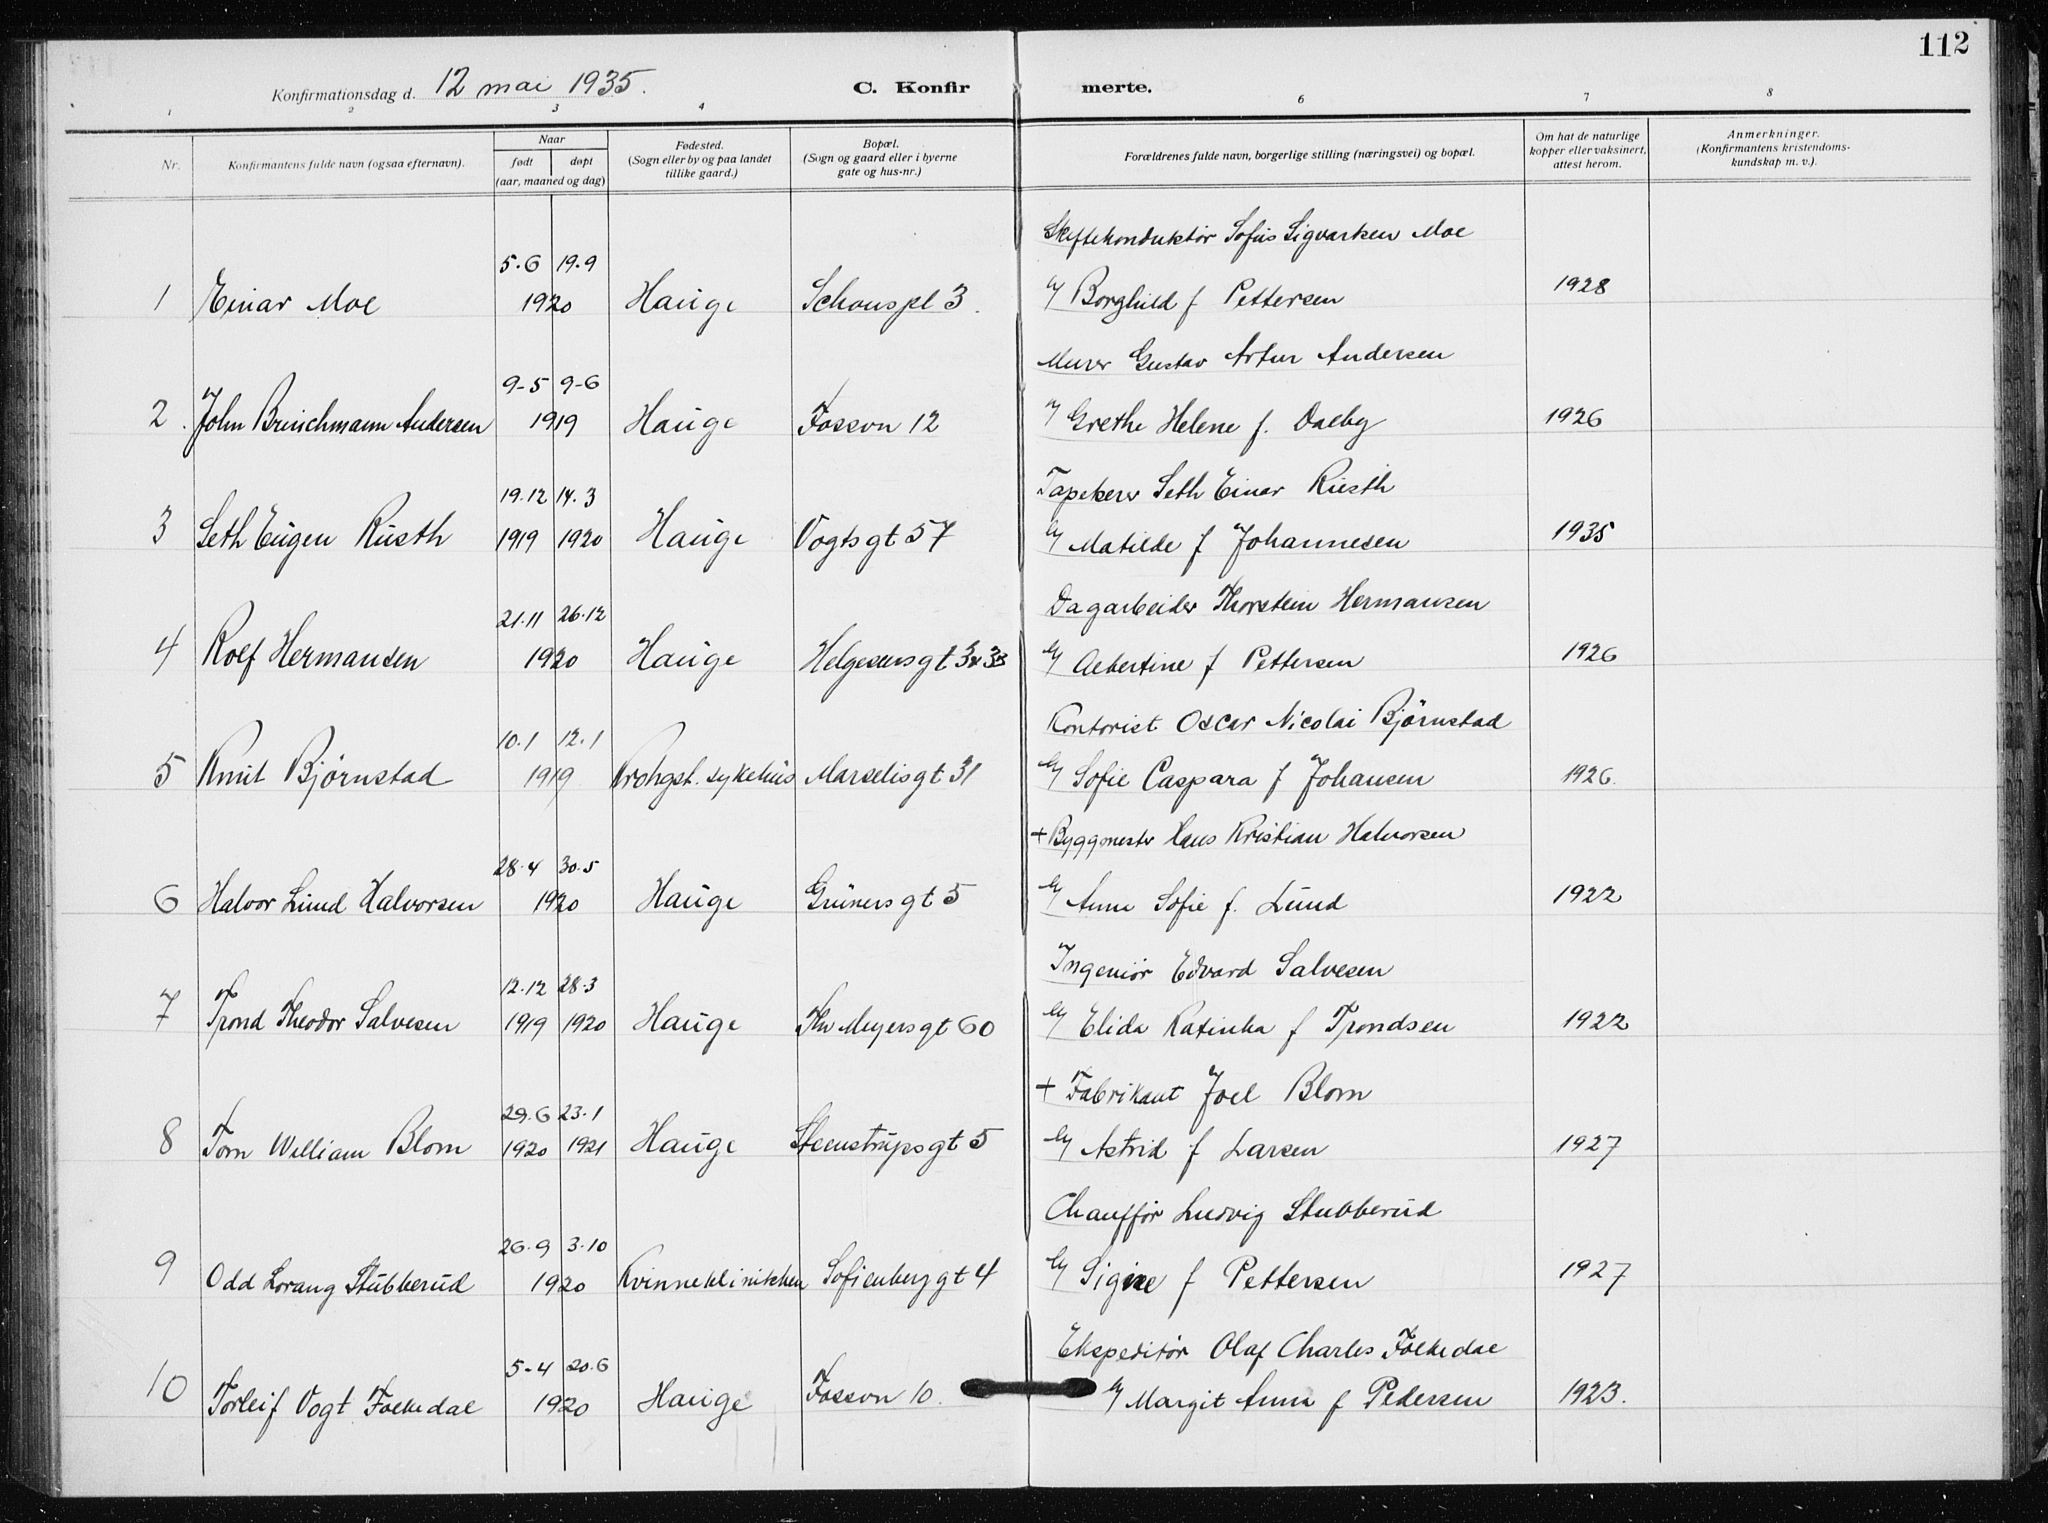 112
Konfirmationsdag d. 12 mai 1935. C. Konfirmerte.
1 2 3 4 6 7 8
Nr. Konfirmantens fulde navn (ogsaa efternavn). Naar født døpt (aar, maaned og dag) Fødested. (Sogn eller by og paa landet tillike gaard.) Bopæl. (Sogn og gaard eller i byerne gate og hus-nr.) Forældrenes fulde navn, borgerlige stilling (næringsvei) og bopæl. Om hat de naturlige kopper eller vaksinert, attest herom. Anmerkninger. (Konfirmantens kristendomskundskap m. v.).
Skiftekonduktør Sofus Sigvartsen Moe
5.6 19.9
1 Einar Moe 1920 Hauge Schouspl 3. Borghild f Pettersen 1928
Murer Gustav Artur Andersen
9-5 9-6
2. John Brinchmann Andersen 1919 Hauge Fossvn 12 Grethe Helene f. Dalby 1926
Tapeserer Seth Einar Rusth
19.12 14.3
3 Seth Eugen Rusth 1919 1920 Hauge Vogtsgt 57 Matilde f Johannesen 1935
Dagarbeider Thorstein Hermansen
21.11 26.12
4 Rolf Hermansen 1920 Hauge Helgesensgt Albertine f Pettersen 1926
Kontorist Oscar Nicolai Bjørnstad
10.1 12.1
5 Knut Bjørnstad 1919 Krohgst. sykehus Marselisgt 31 Sofie Caspara f Johansen 1926.
+ Byggmester Hans Kristian Halvorsen
28.4 30.5
6 Halvor Lund Halvorsen 1920 Hauge Grünersgt 5 Anna Sofie f. Lund 1922
Ingeniør Edvard Salvesen
12.12 28.3
7 Trond Theodor Salvesen 1919 1920 Hauge Thv Meyersgt 60 Elida Katinka f Trondsen 1922
+ Fabrikant Joel Blom
29.6 23.1
8 Tom William Blom 1920 1921 Hauge Steenstrupsgt 5 Astrid f Larsen 1927
Chauffør Ludvig Stubberud
26.9 3.10
9 Odd Lorang Stubberud 1920 Kvinneklinikken Sofienberggt 4 Signe f Pettersen 1927
Ekspeditør Olaf Charles Folkedal
5-4 20.6
10 Torleif Vogt Folkedal 1920 Hauge Fossvn 10. Margit Anna f Pedersen 1923.